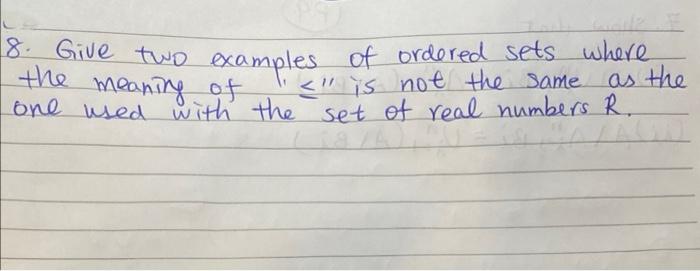 8. Give two examples of ordered sets where
the meaning of "≤" is not the same as the
one used with the set of real numbers R.